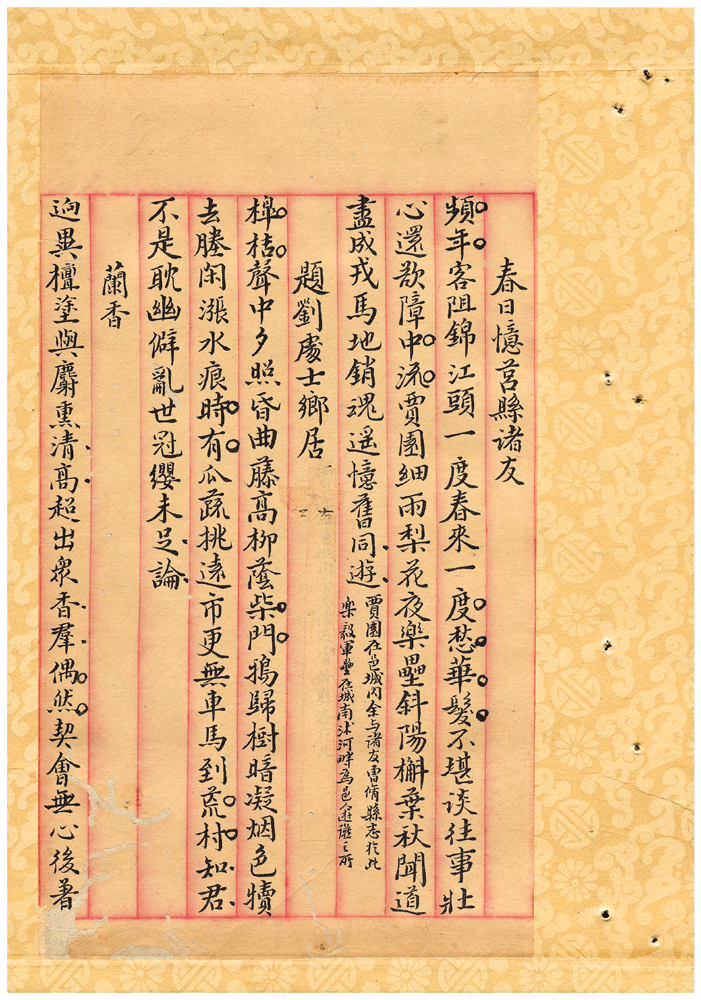 春日憶莒縣諸友
頻年客阻錦江頭一度春來一度愁華髮不堪談往事壯
心還欲障中流賈園細雨梨花夜樂壘斜陽槲葉秋聞道
盡成戎馬地銷魂遥憶舊同遊
賈園在邑城内余与諸友曾脩縣志扵此
樂毅軍壘在城南沭河畔為邑人避難之所
題劉處士鄉居
槔桔聲中夕照昏曲藤高柳蔭柴門鴉歸樹暗凝烟色犢
去塍閑漲水痕時有瓜蔬挑遠市更無車馬到荒村知君
不是耽幽僻亂世冠纓未足論
蘭香
迥異檀塗與麝熏清高超出衆香羣偶然契會無心後著